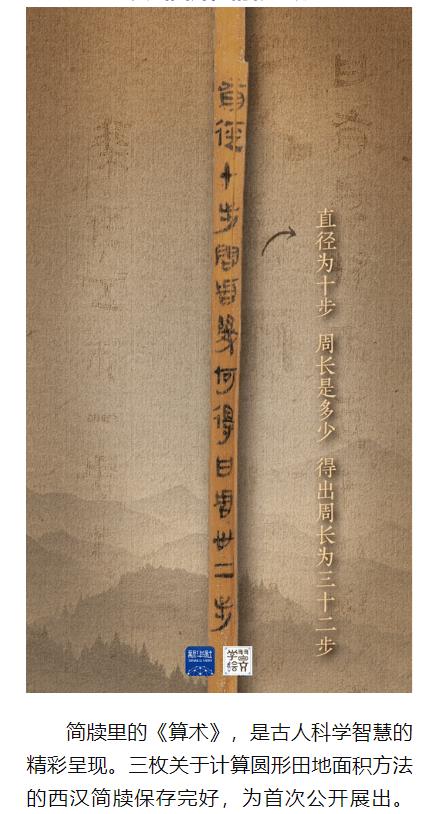 直徑十步問周幾何得曰周卅二步
直径为十步 周长是多少 得出周长为三十二步
简牍里的《算术》，是古人科学智慧的
精彩呈现。三枚关于计算圆形田地面积方法
的西汉简牍保存完好，为首次公开展出。